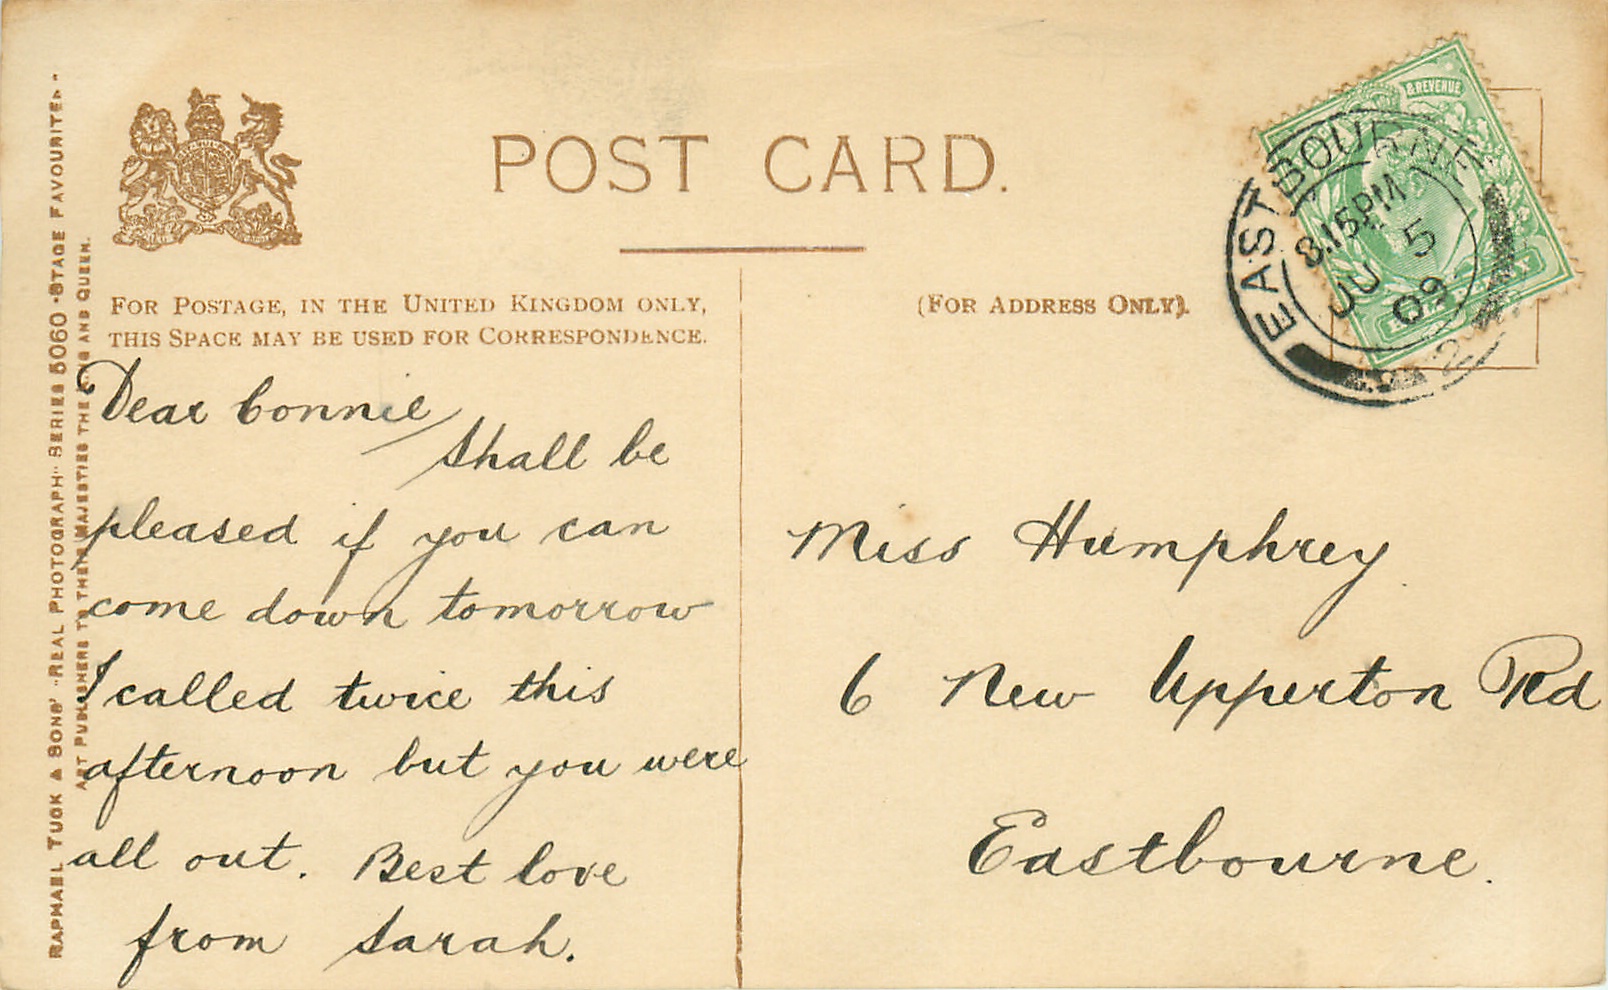 RAPHAEL TUCK & SONS' "REAL PHOTOGRAPH" SERIES 5060 "STAGE FAVOURITES"
ART PUBLISHERS TO THEIR MAJESTIES THE KING AND QUEEN.
POST CARD.
FOR POSTAGE, IN THE UNITED KINGDOM ONLY,
THIS SPACE MAY BE USED FOR CORRESPONDENCE.
Dear Connie
Shall be
pleased if you can
come down tomorrow
I called twice this
afternoon but you were
all out. Best love
from Sarah.
(FOR ADDRESS ONLY).
& REVENUE
EASTBOURNE
8.15PM
JU 5
09
2
Miss Humphrey
6 New Upperton Rd
Eastbourne.